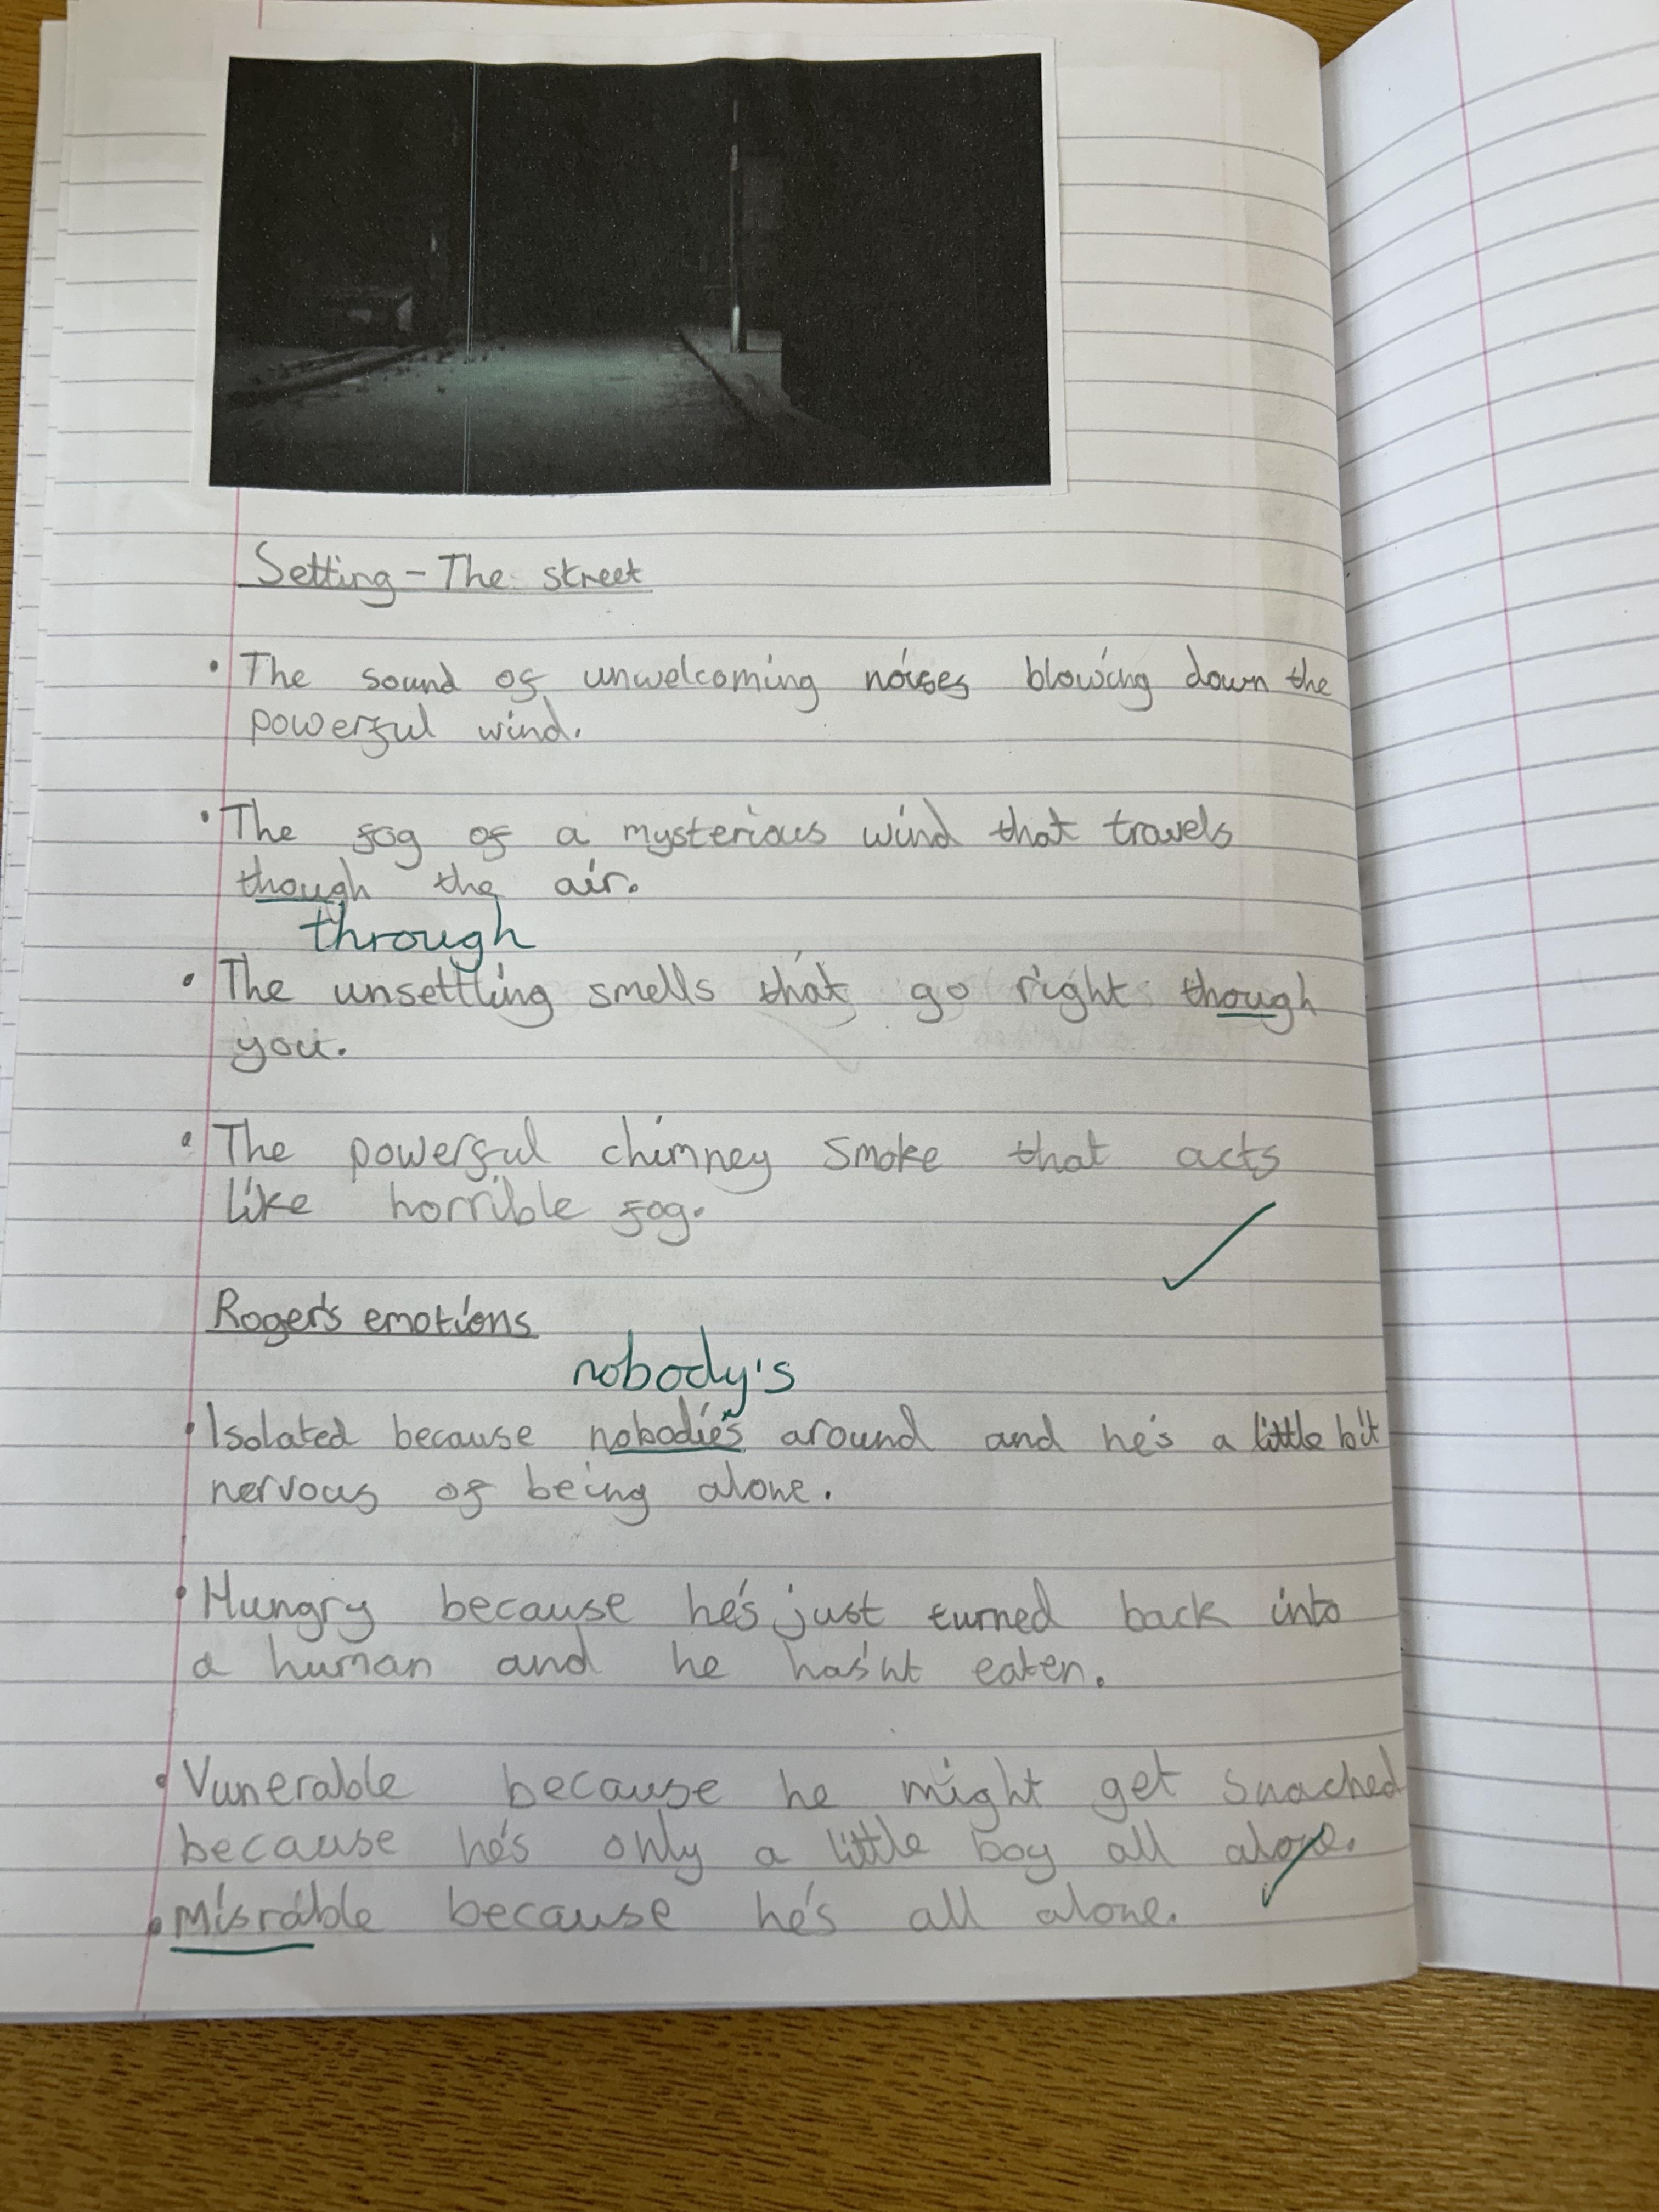 Setting - The street
• The sound of unwelcoming noises blowing down the
powerful wind.
• The fog of a mysterious wind that travels
though the air.
through
• The unsettling smells that go right though
you.
• The powerful chimney smoke that acts
like horrible fog.
Roger's emotions
nobody's
• Isolated because nobodie's around and he's a little bit
nervous of being alone.
• Hungry because he's just turned back into
a human and he has'nt eaten.
• Vunerable because he might get snached
because he's only a little boy all alone.
• Misrable because he's all alone.